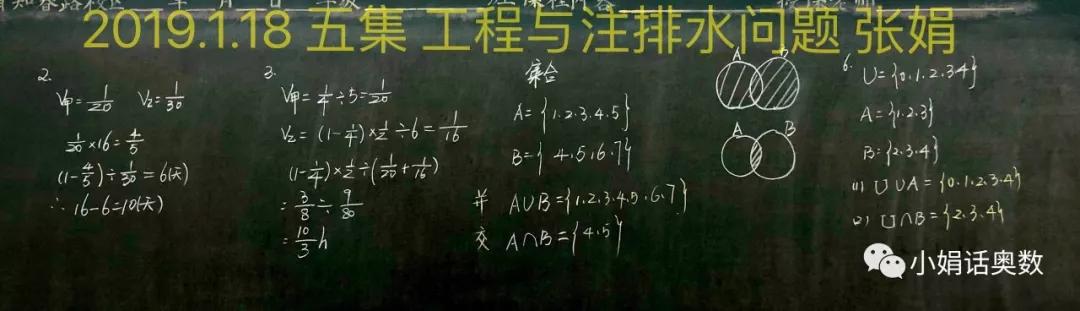 2019.1.18 五集 工程与注排水问题 张娟
2.
V甲=1/20 V乙=1/30
1/20×16=4/5
(1-4/5)÷1/30=6(天)
∴16-6=10(天)
3.
V甲=1/4÷5=1/20
V乙=(1-1/4)×1/2÷6=1/16
(1-1/4)×1/2÷(1/20+1/16)
=3/8÷9/80
=10/3h
集合
A={1.2.3.4.5}
B={4.5.6.7}
并 A∪B={1.2.3.4.5.6.7}
交 A∩B={4.5}
A B
A B
6.
U={0.1.2.3.4}
A={1.2.3}
B={2.3.4}
(1) U∪A={0.1.2.3.4}
(2) U∩B={2.3.4}
小娟话奥数